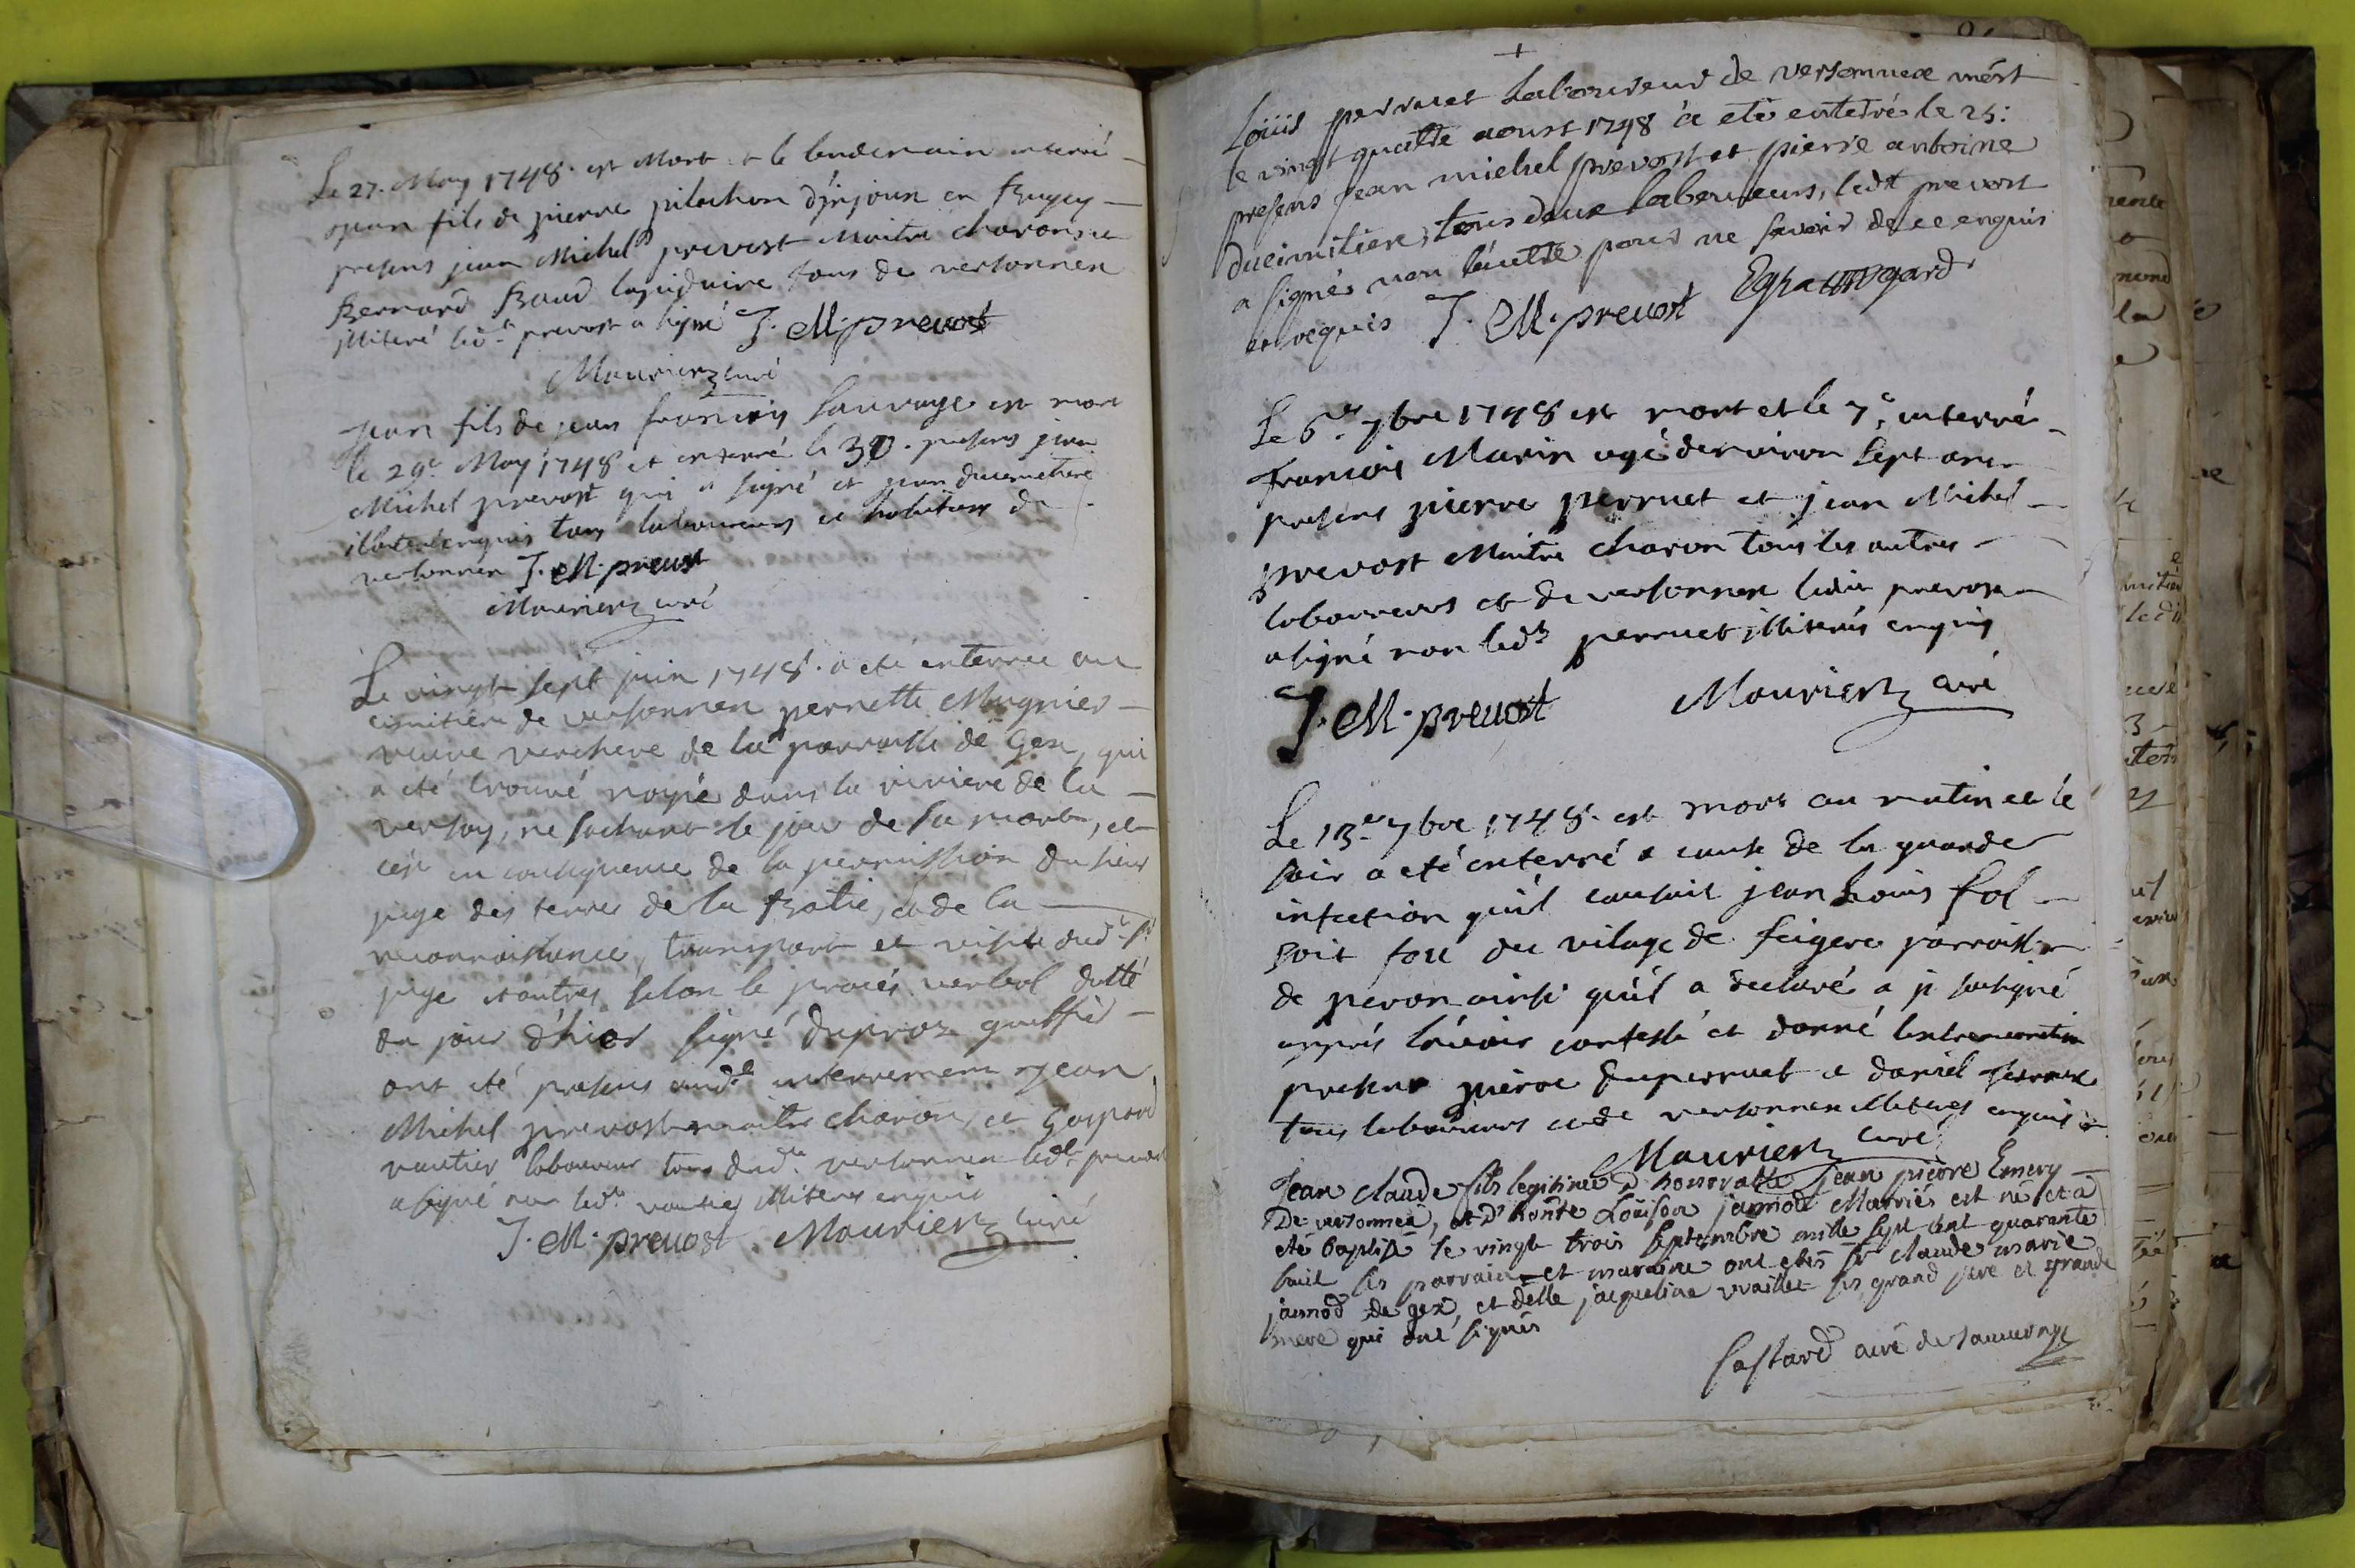 Le 27. May 1748. est Mort et le lendemain enterré
jean fils de pierre pilachon d'injoux en Bugey
presens jean Michel prevost Maitre charon et
Bernard Baud lapiduire tous de versonnex
illiteré led.t prevost a signé J. M. prevost
Mourierz curé
jean fils de jean francois Sauvage est mort
le 29e May 1748 et enterré le 30. presens jean
Michel prevost qui a signé et jean ducimetiere
illiteré enquis tous laboureurs et habitans de
versonnex J. M. prevost
Mourierz curé
Le vingt sept juin 1748. a eté enterrée au
cimitiere de versonnex pernette Mugnier
veuve verchere de la parroisse de Gex, qui
a eté trouvé noyé dans la riviere de la
versoy, ne sachant le jour de sa mort, et
c'est en consequence de la permission du sieur
juge des terres de la Batie, et de la
reconnoissance, transport et visite dud.t Sr
juge et autres selon le procés verbal datté
du jour d'hier signé duproz greffier
ont eté presens aud.t enterrement jean
Michel prevost maitre charon, et Gaspard
vautier laboureur tous dud.t versonnex led.t prevost
a signé non led.t vautier illiteré enquis
J. M. prevost Mourierz curé
Loüis perruet Laboureur de versonnex mort
le vingt quattre aoust 1748 a eté enterré le 25:
presens Jean michel prevost et pierre antoine
ducimitiere, tous deux laboureurs, ledt prevost
a signé non l'autre pour ne savoir de ce enquis
et requis J. M. prevost
Le 6.e 7bre 1748 est mort et le 7.e enterré
francois Marin agé d'environ sept ans
presens pierre perruet et jean Michel
prevost Maitre charon tous les autres
laboureurs et de versonnex ledit prevost
a signé non led.t perruet illiterés enquis
J. M. prevost Mourierz curé
Le 13.e 7bre 1748. est mort au matin et le
soir a eté enterré a cause de la grande
infection qu'il causoit jean Louis fol
soit fou du vilage de feigere parroisse
de peron ainsi qu'il a declaré a je soussigné
aprés l'avoir confessé et donné
presens pierre duperruet et daniel
tous laboureurs et de versonnex illiterés enquis
Mourierz curé
Jean claude fils legitime d'honorable jean pierre Emery
De versonnex, et d'honte Loüise jannod Mariés est né et a
eté baptisé le vingt trois septembre mille sept cent quarante
huit ses parrain et maraine ont etés Sr claude marie
jannod de gex, et delle jacqueline vuaillet ses grand pere et grande
mere qui ont signés
castard curé de sauverny